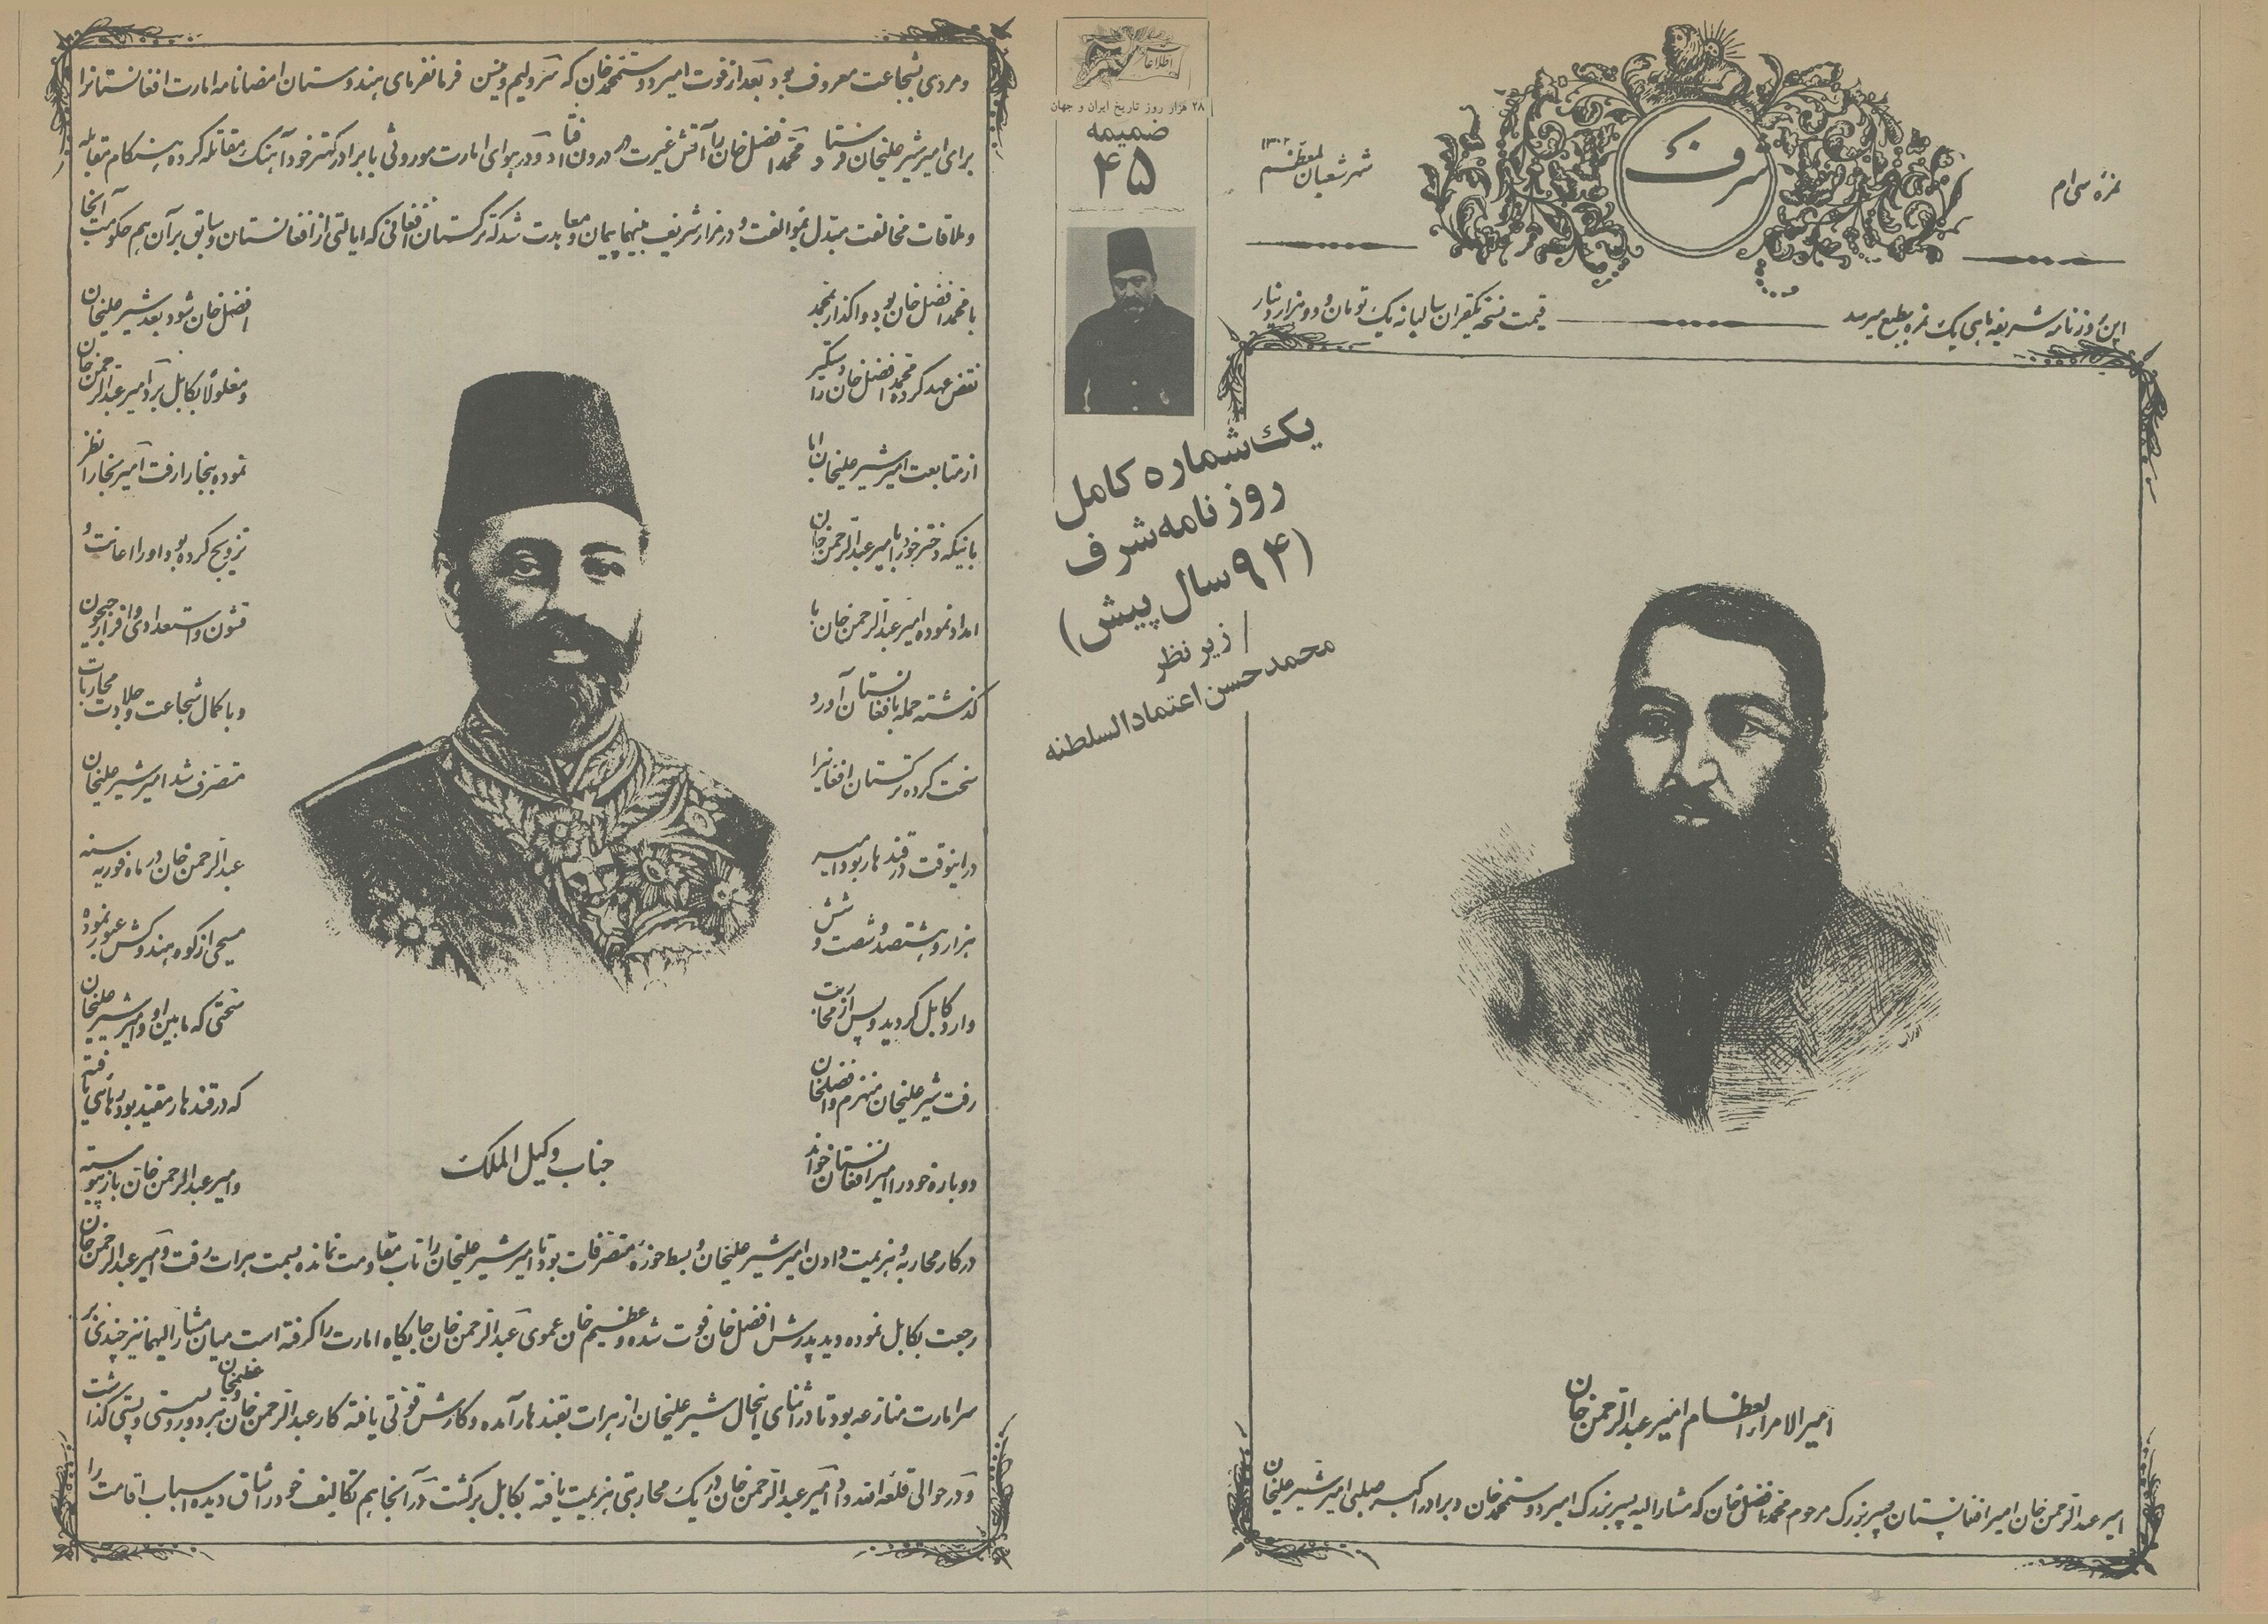 نمرهٔ سی‌ام
شرف
شهر شعبان المعظّم ۱۳۰۲
این روزنامه شریفه ماهی یک نمره بطبع میرسد
قیمت نسخه یکقران سالیانه یک تومان و دو هزار دینار
امیرالامراء العظام امیر عبدالرحمن خان
امیر عبدالرحمن خان امیر افغانستان پسر بزرگ مرحوم محمد افضل خان که مشارالیه پسر بزرگ امیر دوستمحمد خان و برادر اکبر صلبی امیر شیر علیخان
اطلاعات
۲۸ هزار روز تاریخ ایران و جهان
ضمیمه
۴۵
یک شماره کامل
روزنامه شرف
(۹۴ سال پیش)
زیر نظر
محمد حسن اعتماد السلطنه
و مردی بشجاعت معروف بود بعد از فوت امیر دوستمحمد خان که سر ولیم فرمانفرمای هندوستان امضا نامه امارت افغانستانرا
برای امیر شیر علیخان فرستاد محمد افضل خان را آتش غیرت در درون افتاد و در هوای امارت موروثی با برادر کهتر خود آهنگ مقاتله کرده هنگام مقابله
و ملاقات مخالفت مبدل بموالفت و در مزار شریف بینهما پیمان و معاهدت شد که ترکستان افغانی که ایالتی از افغانستان و سابق بر آن هم حکومت آنجا
با محمد افضل خان بود واگذار بمحمد
افضل خان شود بعد شیر علیخان
نقض عهد کرده محمد افضل خان را دستگیر
و مغلولاً بکابل برد امیر عبدالرحمن خان
از متابعت امیر شیر علیخان ابا
نموده ببخارا رفت امیر بخارا نظر
باینکه دختر خود را بامیر عبدالرحمن خان
تزویج کرده بود او را اعانت و
امداد نموده امیر عبدالرحمن خان با
قشون و استعدادی وافر از جیحون
گذشته حمله بافغانستان آورد
و با کمال شجاعت و جلادت محاربات
سخت کرده ترکستان افغانیرا
متصرف شد امیر شیر علیخان
در اینوقت در قندهار بود امیر
عبدالرحمن خان در ماه فوریه سنه
هزار و هشتصد و شصت و شش
مسیحی از کوه هندوکش عبور نموده
وارد کابل گردید و پس از محاربت
سختی که مابین او و امیر شیر علیخان
رفت شیر علیخان منهزم و افضلخان
که در قندهار مقید بود رهائی یافته
دوباره خود را امیر افغانستان خواند
و امیر عبدالرحمن خان باز پیوسته
جناب وکیل الملک
در کار محاربه و هزیمت دادن امیر شیر علیخان و بسط حوزه متصرفات بود تا امیر شیر علیخان را تاب مقاومت نمانده بسمت هرات رفت و امیر عبدالرحمن خان
رجعت بکابل نموده دید پدرش افضل خان فوت شده و عظیم خان عموی عبدالرحمن خان جایگاه امارت را گرفته است میان مشارالیهما نیز چندی بر
سر امارت منازعه بود تا در اثنای اینحال شیر علیخان از هرات بقندهار آمده و کارش قوتی یافته کار عبدالرحمن خان و عظیمخان نیز رو بسستی و پستی گذاشت
و در حوالی قلعه امیر عبدالرحمن خان در یک محاربتی هزیمت یافته بکابل برگشت در آنجا هم تکالیف خود را شاق دیده اسباب اقامت را